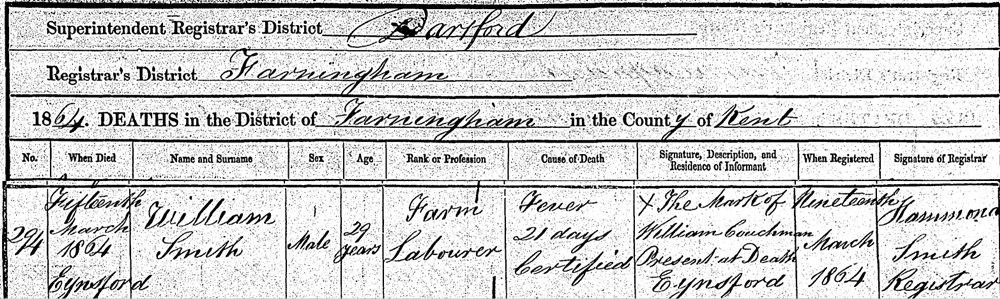 Superintendent Registrar's District Dartford
Registrar's District Farningham
1864. DEATHS in the District of Farningham in the County of Kent
No. When Died Name and Surname Sex Age Rank or Profession Cause of Death Signature, Description, and Residence of Informant When Registered Signature of Registrar
294
Fifteenth
March
1864
Eynsford
William
Smith
Male
29
years
Farm
Labourer
Fever
21 days
Certified
X The Mark of
William Couchman
Present at Death
Eynsford
Nineteenth
March
1864
Hammond
Smith
Registrar